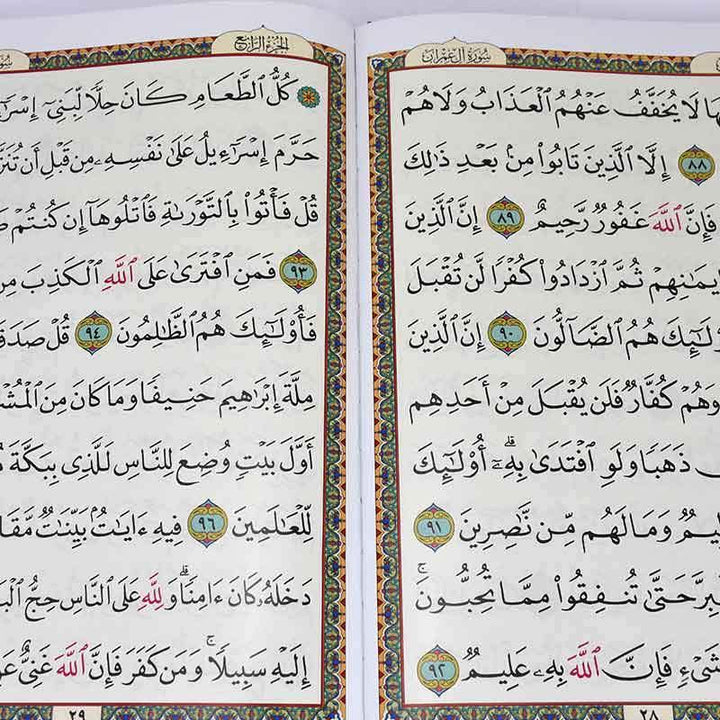 سُورَةُ آلِ عِمْرَانَ
لَا يُخَفَّفُ عَنْهُمُ ٱلْعَذَابُ وَلَا هُمْ
٨٨ إِلَّا ٱلَّذِينَ تَابُوا۟ مِنۢ بَعْدِ ذَٰلِكَ
فَإِنَّ ٱللَّهَ غَفُورٌ رَّحِيمٌ ٨٩ إِنَّ ٱلَّذِينَ
يمَٰنِهِمْ ثُمَّ ٱزْدَادُوا۟ كُفْرًا لَّن تُقْبَلَ
وْلَٰٓئِكَ هُمُ ٱلضَّآلُّونَ ٩٠ إِنَّ ٱلَّذِينَ
وَهُمْ كُفَّارٌ فَلَن يُقْبَلَ مِنْ أَحَدِهِم
ذَهَبًا وَلَوِ ٱفْتَدَىٰ بِهِۦٓ ۗ أُو۟لَٰٓئِكَ
لِيمٌ وَمَا لَهُم مِّن نَّٰصِرِينَ ٩١
بِرَّ حَتَّىٰ تُنفِقُوا۟ مِمَّا تُحِبُّونَ ۚ
شَىْءٍ فَإِنَّ ٱللَّهَ بِهِۦ عَلِيمٌ ٩٢
٢٨
الجُزْءُ الرَّابِعُ
۞ كُلُّ ٱلطَّعَامِ كَانَ حِلًّا لِّبَنِىٓ إِسْرَٰٓ
حَرَّمَ إِسْرَٰٓءِيلُ عَلَىٰ نَفْسِهِۦ مِن قَبْلِ أَن تُنَزَّ
قُلْ فَأْتُوا۟ بِٱلتَّوْرَىٰةِ فَٱتْلُوهَآ إِن كُنتُمْ صَ
٩٣ فَمَنِ ٱفْتَرَىٰ عَلَى ٱللَّهِ ٱلْكَذِبَ مِن
فَأُو۟لَٰٓئِكَ هُمُ ٱلظَّٰلِمُونَ ٩٤ قُلْ صَدَقَ
مِلَّةَ إِبْرَٰهِيمَ حَنِيفًا وَمَا كَانَ مِنَ ٱلْمُشْ
أَوَّلَ بَيْتٍ وُضِعَ لِلنَّاسِ لَلَّذِى بِبَكَّةَ مُ
لِّلْعَٰلَمِينَ ٩٦ فِيهِ ءَايَٰتٌۢ بَيِّنَٰتٌ مَّقَا
دَخَلَهُۥ كَانَ ءَامِنًا ۗ وَلِلَّهِ عَلَى ٱلنَّاسِ حِجُّ ٱلْبَ
إِلَيْهِ سَبِيلًا ۚ وَمَن كَفَرَ فَإِنَّ ٱللَّهَ غَنِىٌّ عَ
٢٩